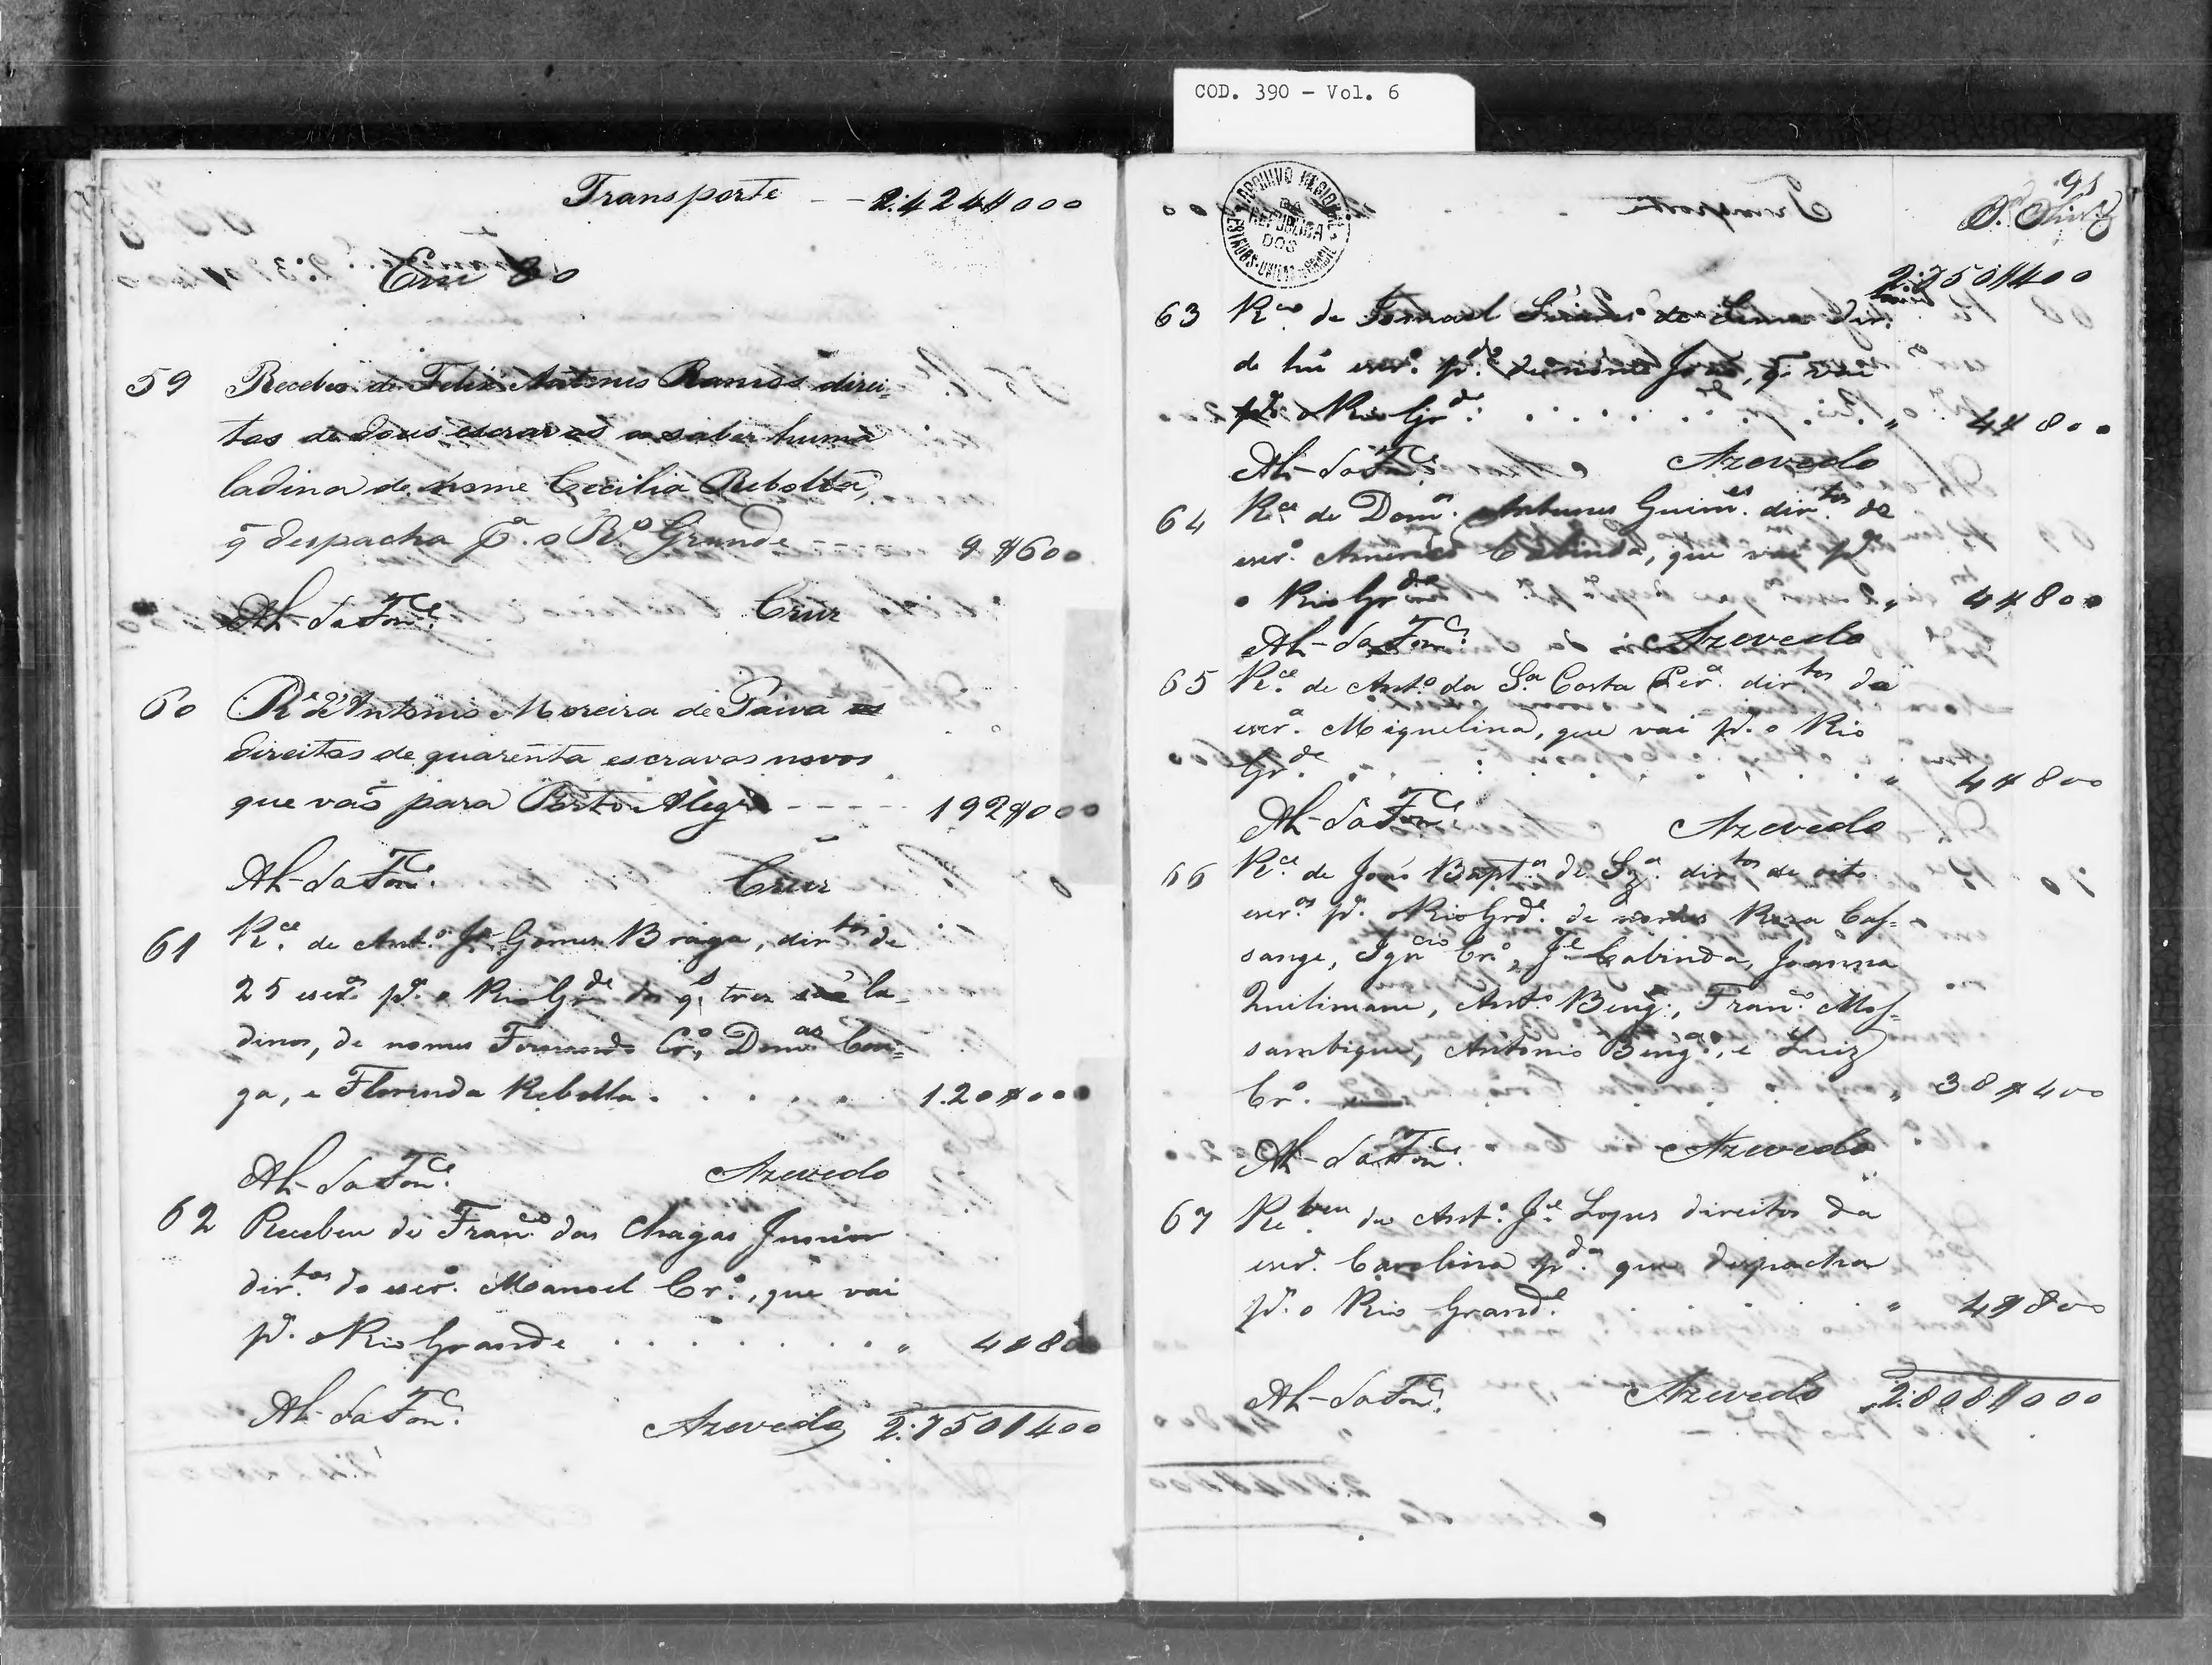 COD. 390 - Vol. 6
Transporte - - 2:424$000
Em 30
59 Recebeo de Felix Antonio Ramos direi-
tos de dous escravos a saber huma
ladina de nome Cecilia Rebolla,
q̃ despacha p.ª o R.º Grande - - - 9$600
Ah-da Fon.ca Cruz
60 R.e d'Antonio Moreira de Paiva os
direitos de quarenta escravos novos
que vão para Porto Alegre - - - - 192$000
Ah-da Fon.ca Cruz
61 R.ce de Ant.º J.e Gomes Braga, dir.tos de
25 escr.os p.ª o Rio Gr.de dos q.s trez são la-
dinos, de nomes Fernando Cr.º, Dom.os Con-
ga, e Florinda Rebolla . . . . . 120$000
Ah-da Fon.ca Azevedo
62 Recebeu de Fran.co das Chagas Junior
dir.tos do escr.º Manoel Cr.º, que vai
p.ª o Rio Grande . . . . . . . " 4$800
Ah-da Fon.ca Azevedo 2:750$400
ARCHIVO
REPUBLICA
DOS
ESTADOS-UNIDOS
91
2:750$400
63 R.ceo de Ismael de Lima dir.
de hũ escr.º p.do de nome João, q. vai
p.ª o Rio Gr.de . . . . . . " 4$800
Ah-da Fon.ca Azevedo
64 R.ce de Dom.os Antunes Guim.es dir.tos do
escr.º Americo Cabinda, que vai p.ª
o Rio Gr.de " 4$800
Ah-da Fon.ca Azevedo
65 R.ce de Ant.º da S.ª Costa Per.ª dir.tos da
escr.ª Miquelina, que vai p.ª o Rio
Gr.de . . . . . . " 4$800
Ah-da Fon.ca Azevedo
66 R.ce de João Bapt.ª de Sz.ª dir.tos de oito
escr.os p.ª o Rio Grd.e de nomes Roza Cas-
sange, Ign.cio Cr.º, J.e Cabinda, Joanna
Quilimane, Ant.º Beng.ª, Fran.co Mos-
sambique, Antonio Beng.ª, e Luiz
Cr.º . . . . " 38$400
Ah-da Fon.ca Azevedo
67 Re.beu de Ant.º J.e Lopes direitos da
escr.ª Carolina p.da que despacha
p.ª o Rio Grand.e . . . . " 4$800
Ah-da Fon.ca Azevedo 2:808$000